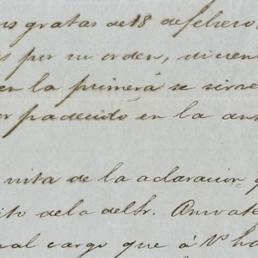 gratas de 18 de febrero
por su orden, dicien
en la primera se sirve
padecido en la an
vista de la aclaracion q
ito de la del Sr.
cargo que á V. ha